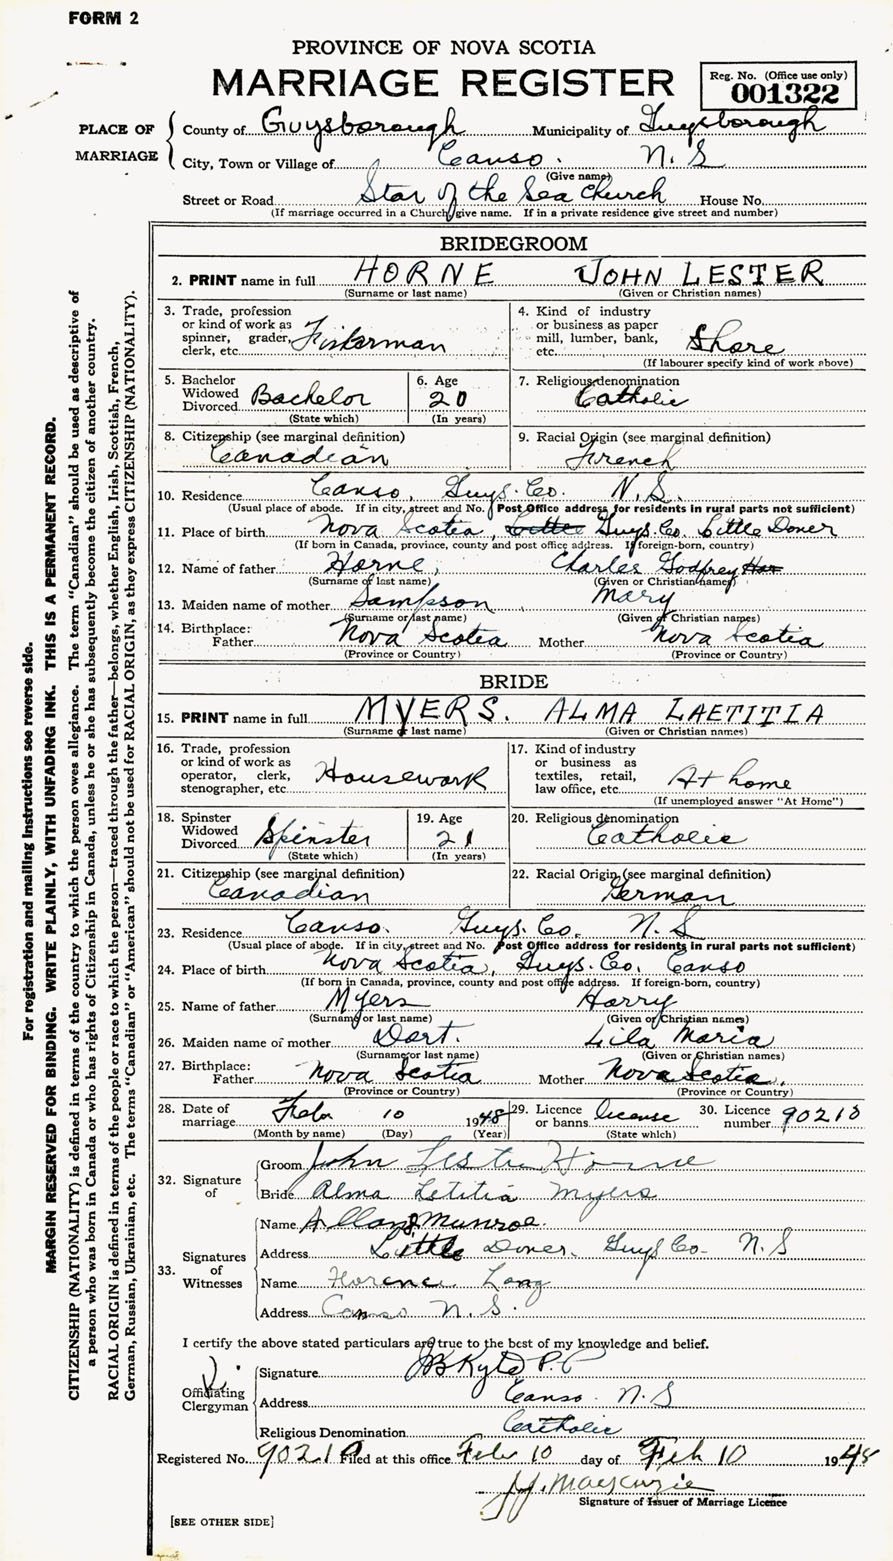 FORM 2
PROVINCE OF NOVA SCOTIA
MARRIAGE REGISTER
Reg. No. (Office use only)
001322
PLACE OF MARRIAGE
County of Guysborough Municipality of Guysborough
City, Town or Village of Canso. N. S
(Give name)
Street or Road Star of the Sea Church House No.
(If marriage occurred in a Church give name. If in a private residence give street and number)
BRIDEGROOM
2. PRINT name in full HORNE JOHN LESTER
(Surname or last name) (Given or Christian names)
3. Trade, profession or kind of work as spinner, grader, clerk, etc. Fisherman
4. Kind of industry or business as paper mill, lumber, bank, etc. Shore
(If labourer specify kind of work above)
5. Bachelor Widowed Divorced Bachelor
(State which)
6. Age 20
(In years)
7. Religious denomination Catholic
8. Citizenship (see marginal definition) Canadian
9. Racial Origin (see marginal definition) French
10. Residence Canso, Guys. Co. N. S.
(Usual place of abode. If in city, street and No. Post Office address for residents in rural parts not sufficient)
11. Place of birth Nova Scotia, Little Guys. Co. Little Dover
(If born in Canada, province, county and post office address. If foreign-born, country)
12. Name of father Horne, Charles Godfrey Hor
(Surname or last name) (Given or Christian names)
13. Maiden name of mother Sampson Mary
(Surname or last name) (Given or Christian names)
14. Birthplace: Father Nova Scotia Mother Nova Scotia
(Province or Country) (Province or Country)
BRIDE
15. PRINT name in full MYERS. ALMA LAETITIA
(Surname or last name) (Given or Christian names)
16. Trade, profession or kind of work as operator, clerk, stenographer, etc. Housework
17. Kind of industry or business as textiles, retail, law office, etc. At home
(If unemployed answer "At Home")
18. Spinster Widowed Divorced Spinster
(State which)
19. Age 21
(In years)
20. Religious denomination Catholic
21. Citizenship (see marginal definition) Canadian
22. Racial Origin (see marginal definition) German
23. Residence Canso. Guys. Co. N. S
(Usual place of abode. If in city, street and No. Post Office address for residents in rural parts not sufficient)
24. Place of birth Nova Scotia, Guys. Co. Canso
(If born in Canada, province, county and post office address. If foreign-born, country)
25. Name of father Myers Harry
(Surname or last name) (Given or Christian names)
26. Maiden name of mother Dort. Lila Maria
(Surname or last name) (Given or Christian names)
27. Birthplace: Father Nova Scotia Mother Nova Scotia.
(Province or Country) (Province or Country)
28. Date of marriage Feb 10 1948
(Month by name) (Day) (Year)
29. Licence or banns license
(State which)
30. Licence number 90210
32. Signature of
Groom John Lester Horne
Bride Alma Letitia Myers
33. Signatures of Witnesses
Name Munroe.
Address Little Dover. Guys Co. N. S
Name Florence Long
Address Canso N. S.
I certify the above stated particulars are true to the best of my knowledge and belief.
Officiating Clergyman
Signature JB Kyte P. P
Address Canso. N. S
Religious Denomination Catholic
Registered No. 90210 Filed at this office Feb 10 day of Feb 10 1948
J.J. MacKenzie
Signature of Issuer of Marriage Licence
[SEE OTHER SIDE]
For registration and mailing instructions see reverse side.
MARGIN RESERVED FOR BINDING. WRITE PLAINLY, WITH UNFADING INK. THIS IS A PERMANENT RECORD.
CITIZENSHIP (NATIONALITY) is defined in terms of the country to which the person owes allegiance. The term "Canadian" should be used as descriptive of
a person who was born in Canada or who has rights of Citizenship in Canada, unless he or she has subsequently become the citizen of another country.
RACIAL ORIGIN is defined in terms of the people or race to which the person—traced through the father—belongs, whether English, Irish, Scottish, French,
German, Russian, Ukrainian, etc. The terms "Canadian" or "American" should not be used for RACIAL ORIGIN, as they express CITIZENSHIP (NATIONALITY).